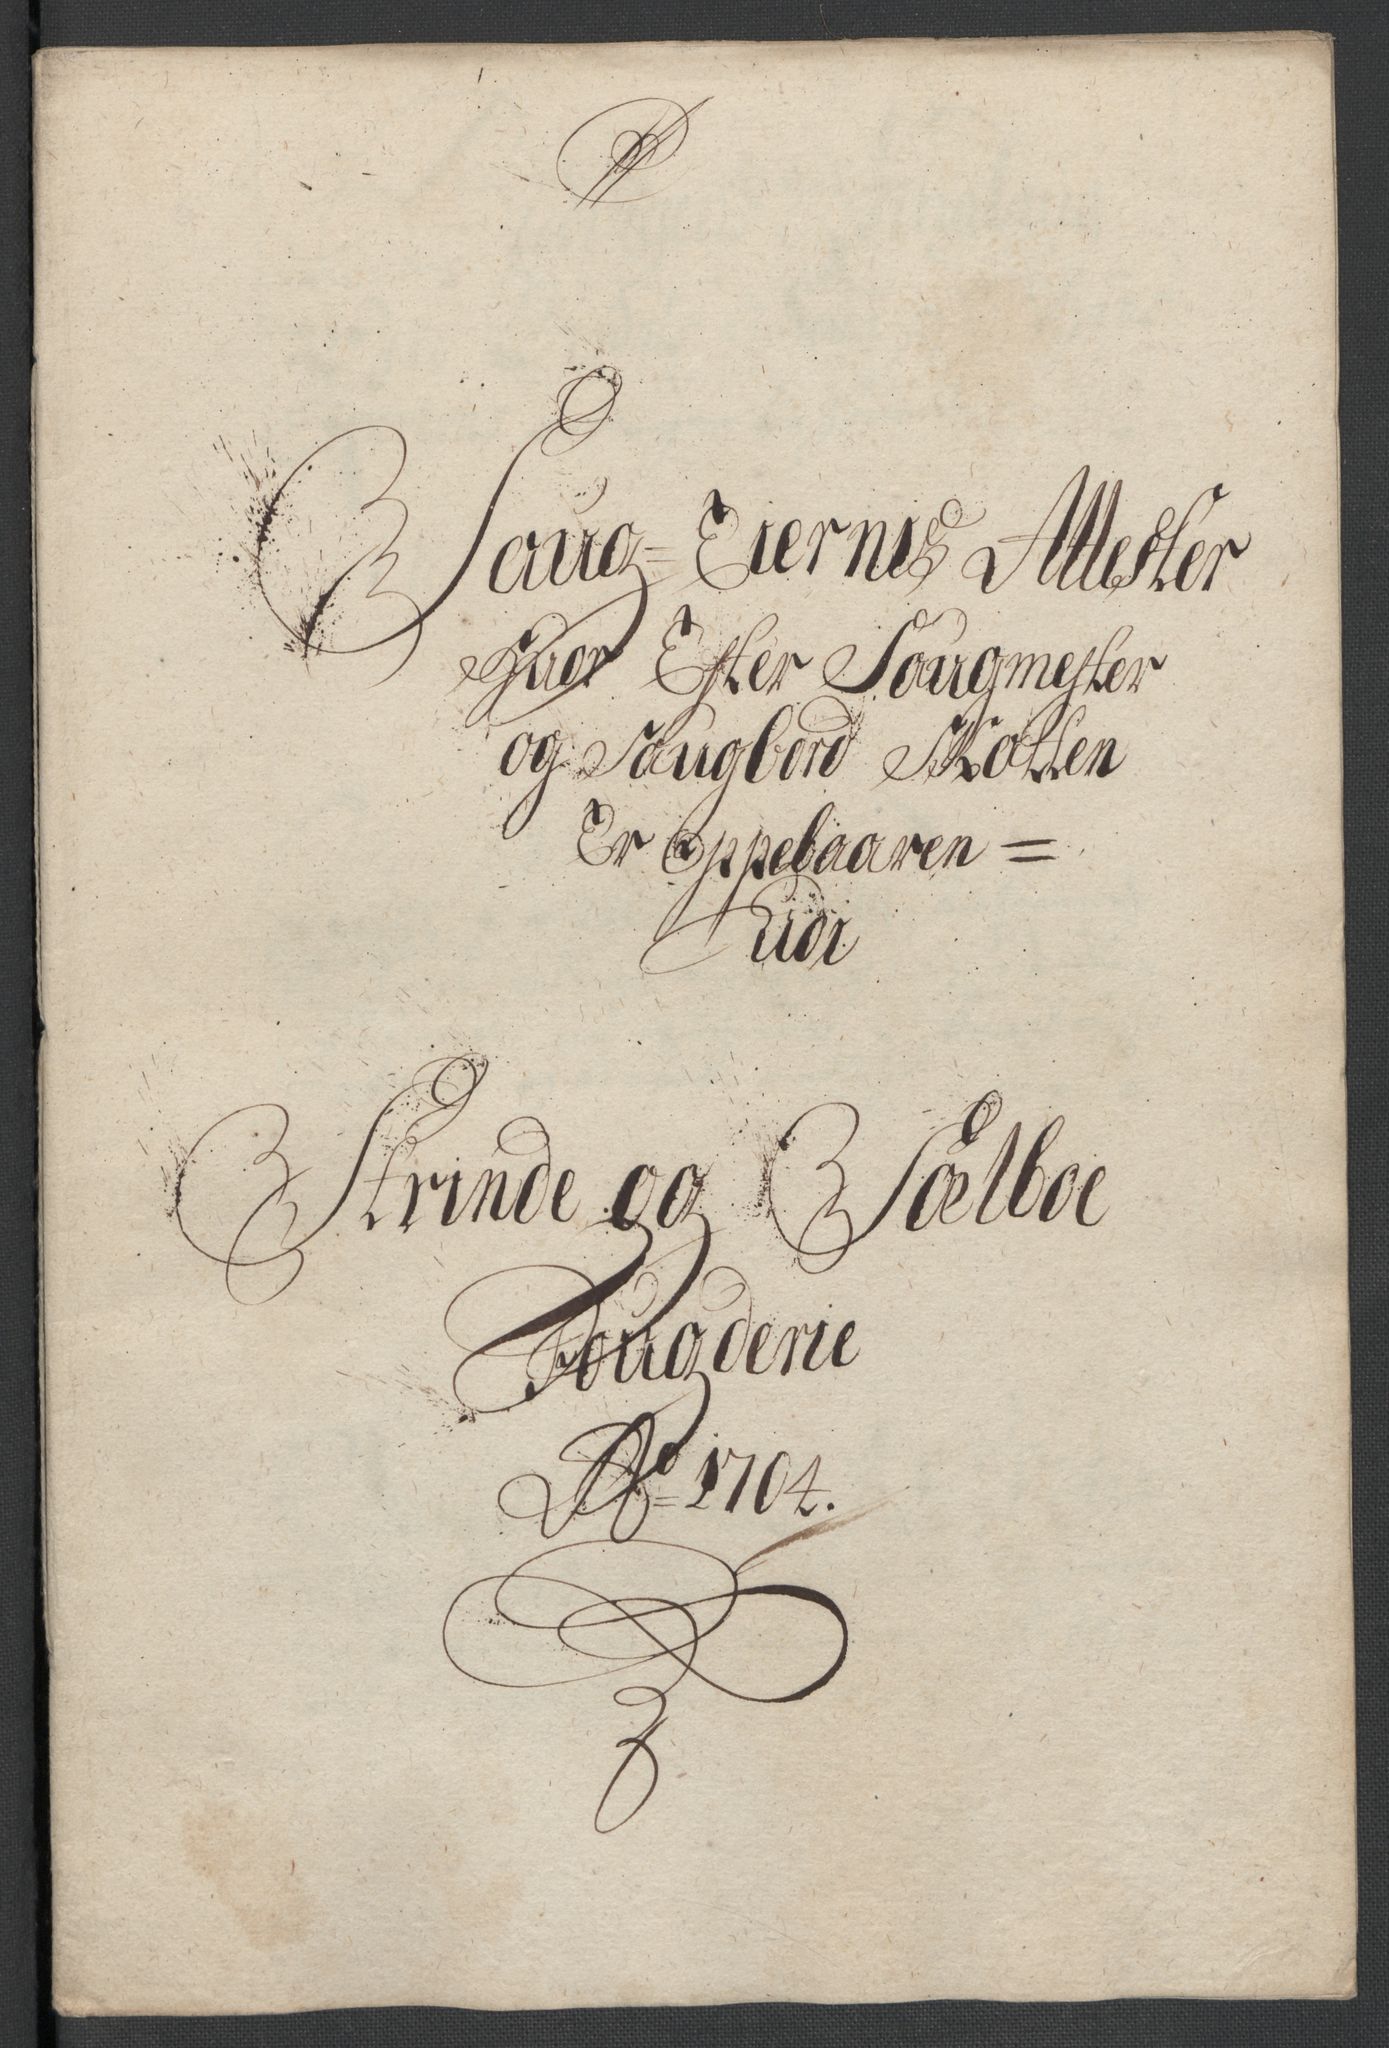 Saug=Eiernis Attester
Huor Efter Saugmester
og Saugbord Skatten
Er Oppebaaren =
Udi
Strinde og Sælboe
Fougderie
Ao= 1704.